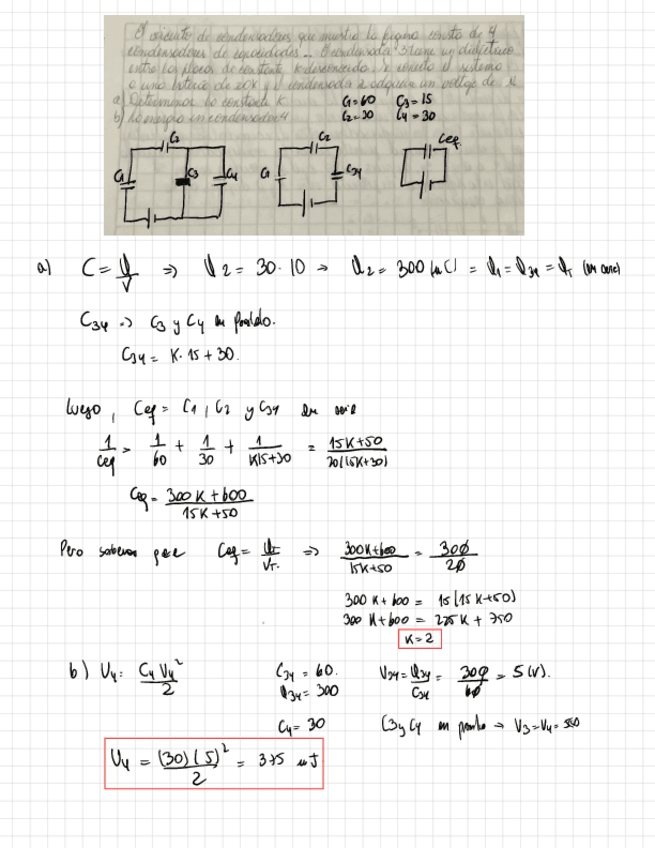 El circuito de condensadores que muestra la figura consta de 4
condensadores de capacidades... El condensador 3 tiene un dieléctrico
entre las placas de constante K desconocida. Se conecta el sistema
a una batería de 20V y el condensador 2 adquiere un voltaje de
a) Determinar la constante K C1=60 C3=15
b) La energía en condensador 4 C2=30 C4=30
C2 C2 Ceq
C1 C3 C4 C1 C34
a) C = Q/V => Q2 = 30·10 → Q2 = 300 [uC] = Q1 = Q34 = QT (en serie)
C34 => C3 y C4 en paralelo.
C34 = K·15 + 30.
Luego, Ceq = C1, C2 y C34 en serie
1/Ceq = 1/60 + 1/30 + 1/K15+30 = 15K+50/20(15K+30)
Ceq = 300K+600/15K+50
Pero sabemos que Ceq = QT/VT. => 300K+600/15K+50 = 300/20
300K+600 = 15(15K+50)
300K+600 = 225K+750
K=2
b) U4 = C4 V4²/2 C34 = 60. V34 = Q34/C34 = 300/60 = 5(V).
Q34 = 300
C4 = 30 C3 y C4 en paralelo → V3=V4=
U4 = (30)(5)²/2 = 375 uJ